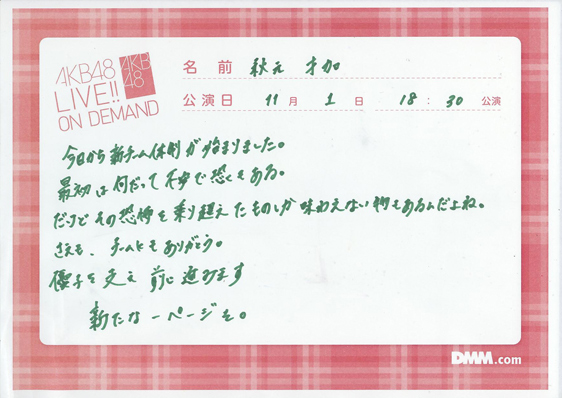 AKB48
LIVE!!
ON DEMAND
AKB
48
名前 秋元 才加
公演日 11月 1日 18:30 公演
今日から新チーム体制が始まりました。
最初は何だって不安で恐くもある。
だけどその恐怖を乗り越えたものしか味わえない物もあるんだよね。
ありがとう。
優子を支え 前に進みます
新たな一ページを。
DMM.com